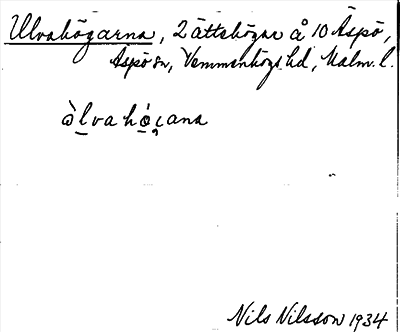 Ulvahögarna, 2 ättehögar å 10 Äspö,
Äspö sn, Vemmenhögs hd, Malm. l.
ò̀lvahó̤c̣ana
Nils Nilsson 1934